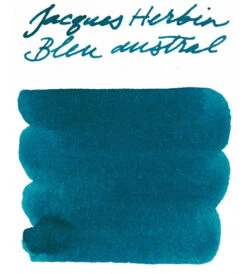 Jacques Herbin
Bleu austral